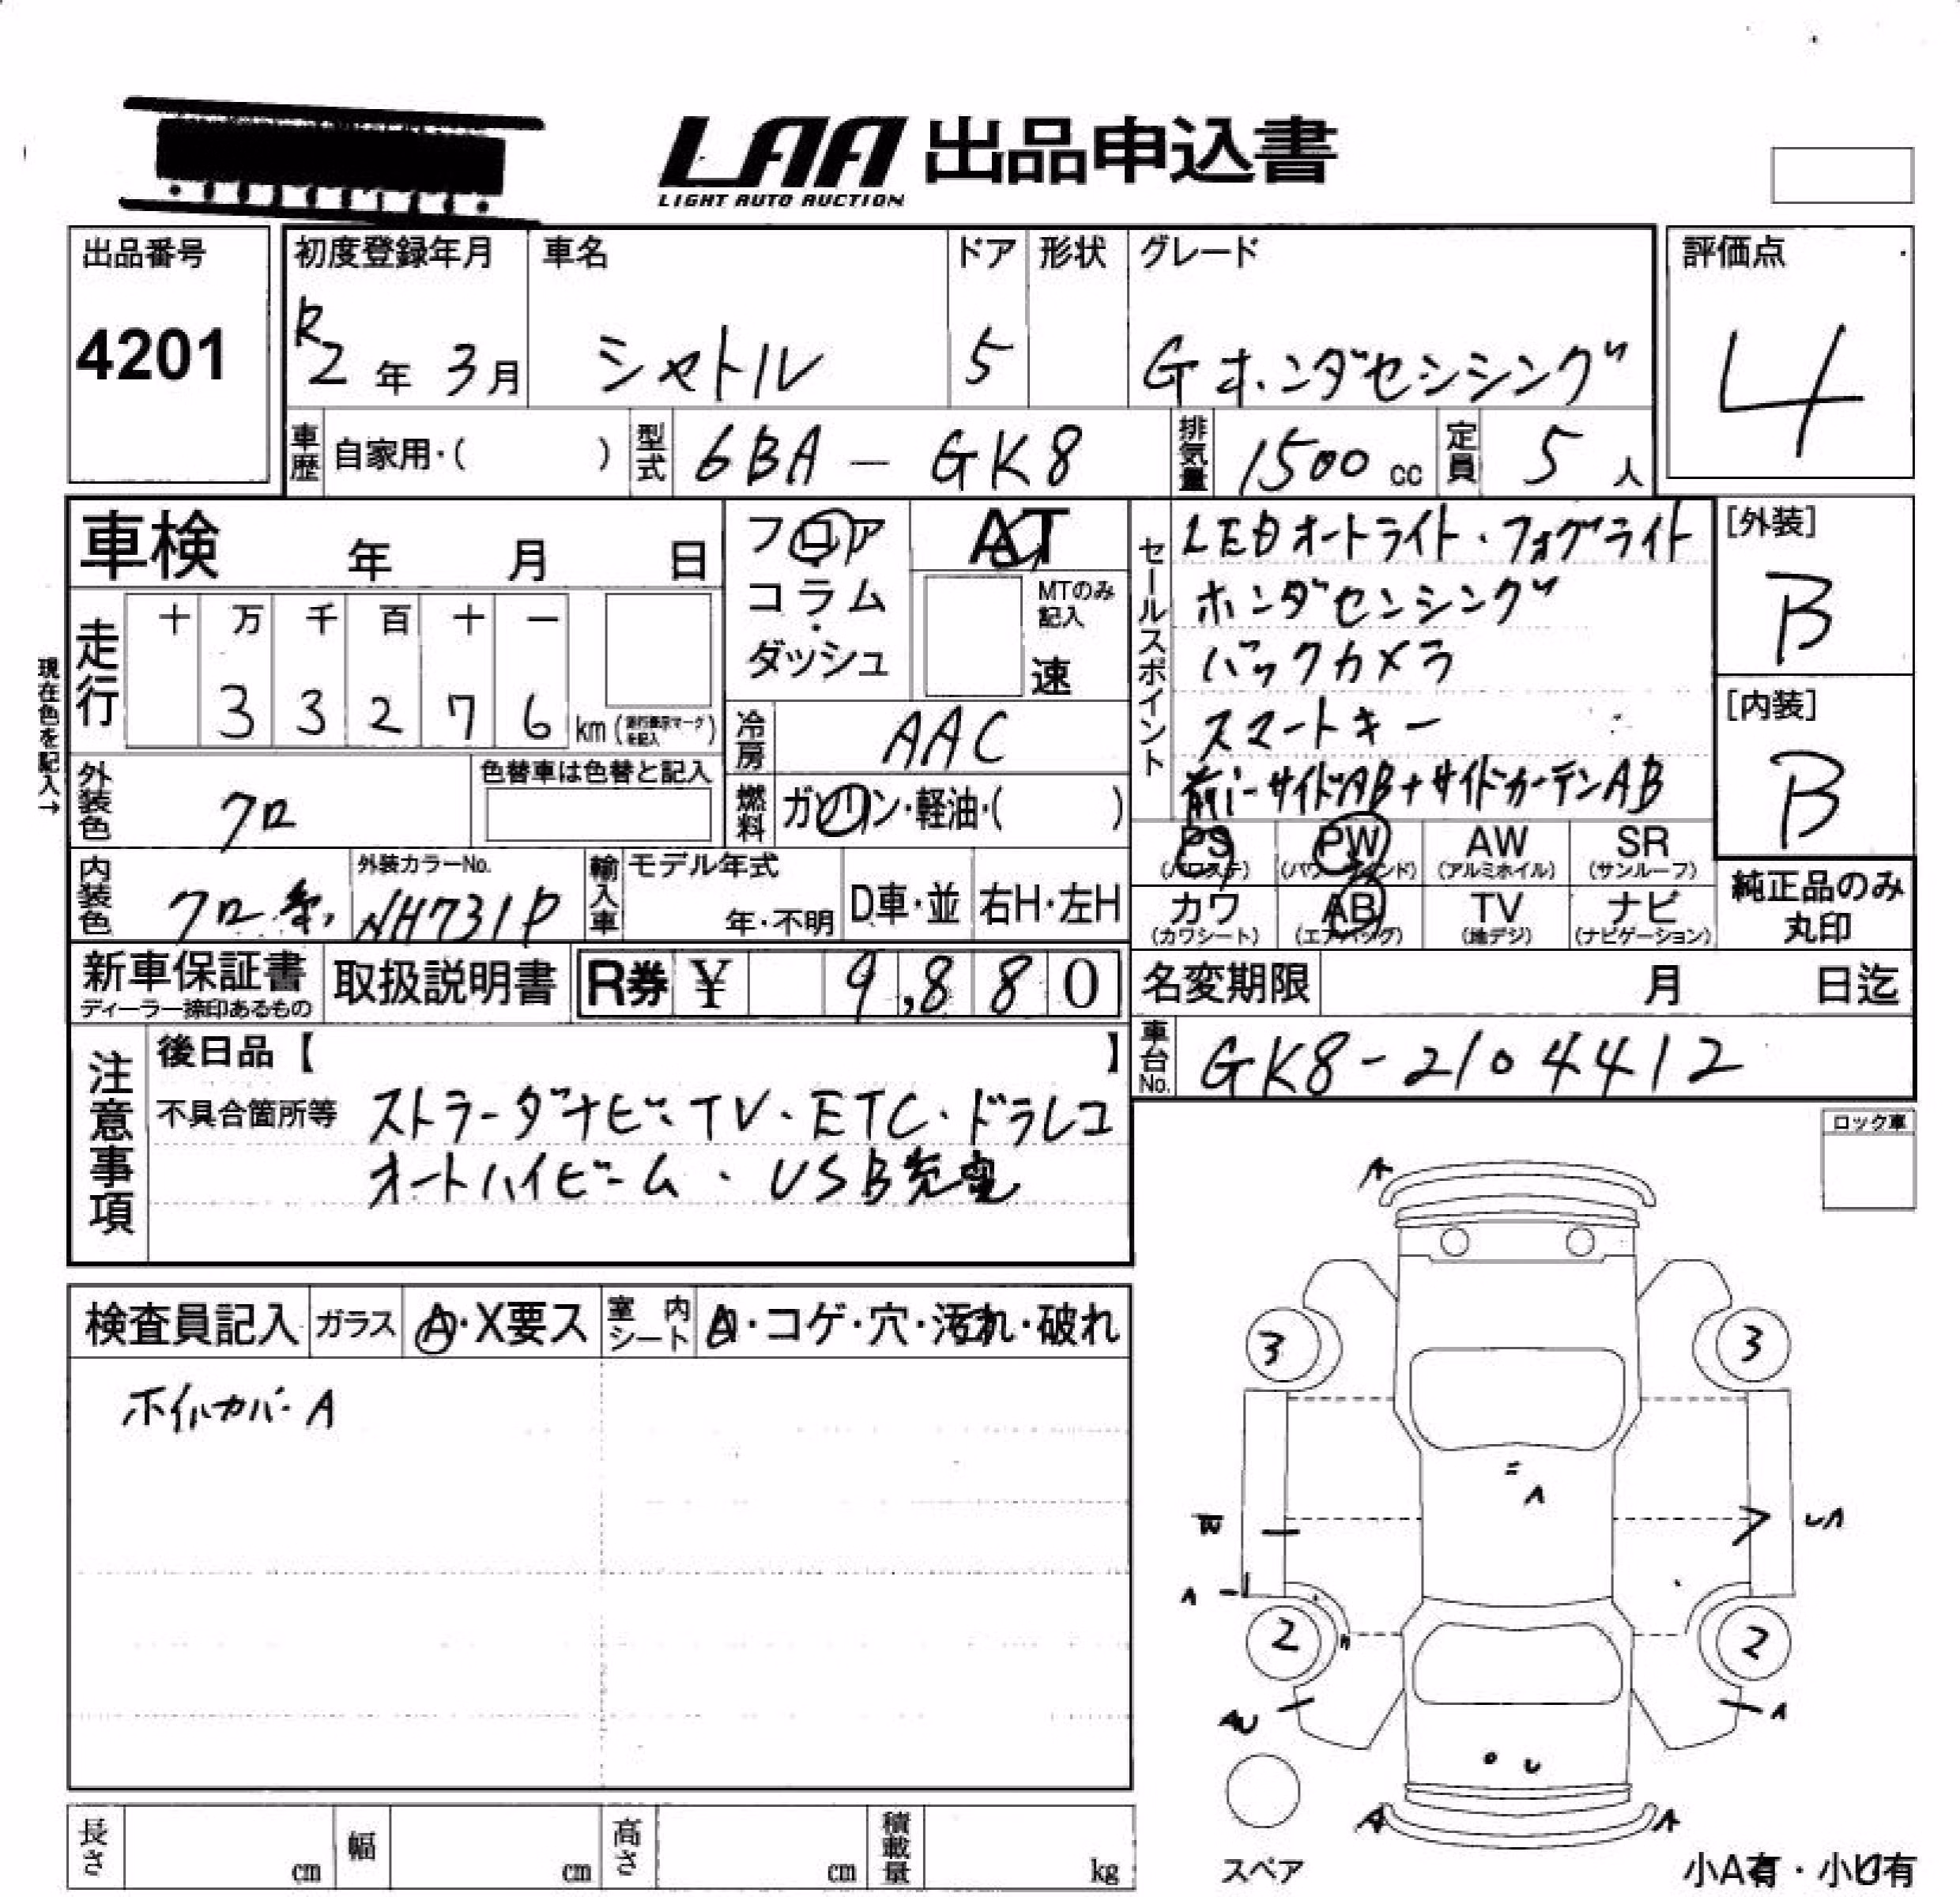 LAA 出品申込書
LIGHT AUTO AUCTION
出品番号
4201
初度登録年月
R2年 3月
車名
シャトル
ドア
5
形状
グレード
Gホンダセンシング
評価点
4
車歴 自家用・( )
型式 6BA - GK8
排気量 1500 cc
定員 5 人
車検 年 月 日
フロア
コラム
ダッシュ
AT
MTのみ記入
速
走行
十 万 千 百 十 一
3 3 2 7 6 km (走行表示マークを記入)
現在色を記入→
冷房 AAC
外装色 クロ
色替車は色替と記入
燃料 ガソリン・軽油・( )
内装色 クロ系
外装カラーNo.
NH731P
輸入車
モデル年式
年・不明
D車・並
右H・左H
セールスポイント
LEDオートライト・フォグライト
ホンダセンシング
バックカメラ
スマートキー
前・サイドAB+サイドカーテンAB
[外装]
B
[内装]
B
PS (パワステ)
PW (パワーウインド)
AW (アルミホイル)
SR (サンルーフ)
カワ (カワシート)
AB (エアバッグ)
TV (地デジ)
ナビ (ナビゲーション)
純正品のみ
丸印
新車保証書
ディーラー捺印あるもの
取扱説明書
R券 ¥ 9,880
名変期限 月 日迄
車台No. GK8-2104412
注意事項
後日品【 】
不具合箇所等 ストラーダナビ・TV・ETC・ドラレコ
オートハイビーム・USB充電
ロック車
検査員記入
ガラス A・X要ス
室内シート A・コゲ・穴・汚れ・破れ
ホイルカバーA
A
3 3
A
U A
A
2 2
AU A
U
A A
スペア
小A有・小U有
長さ cm
幅 cm
高さ cm
積載量 kg